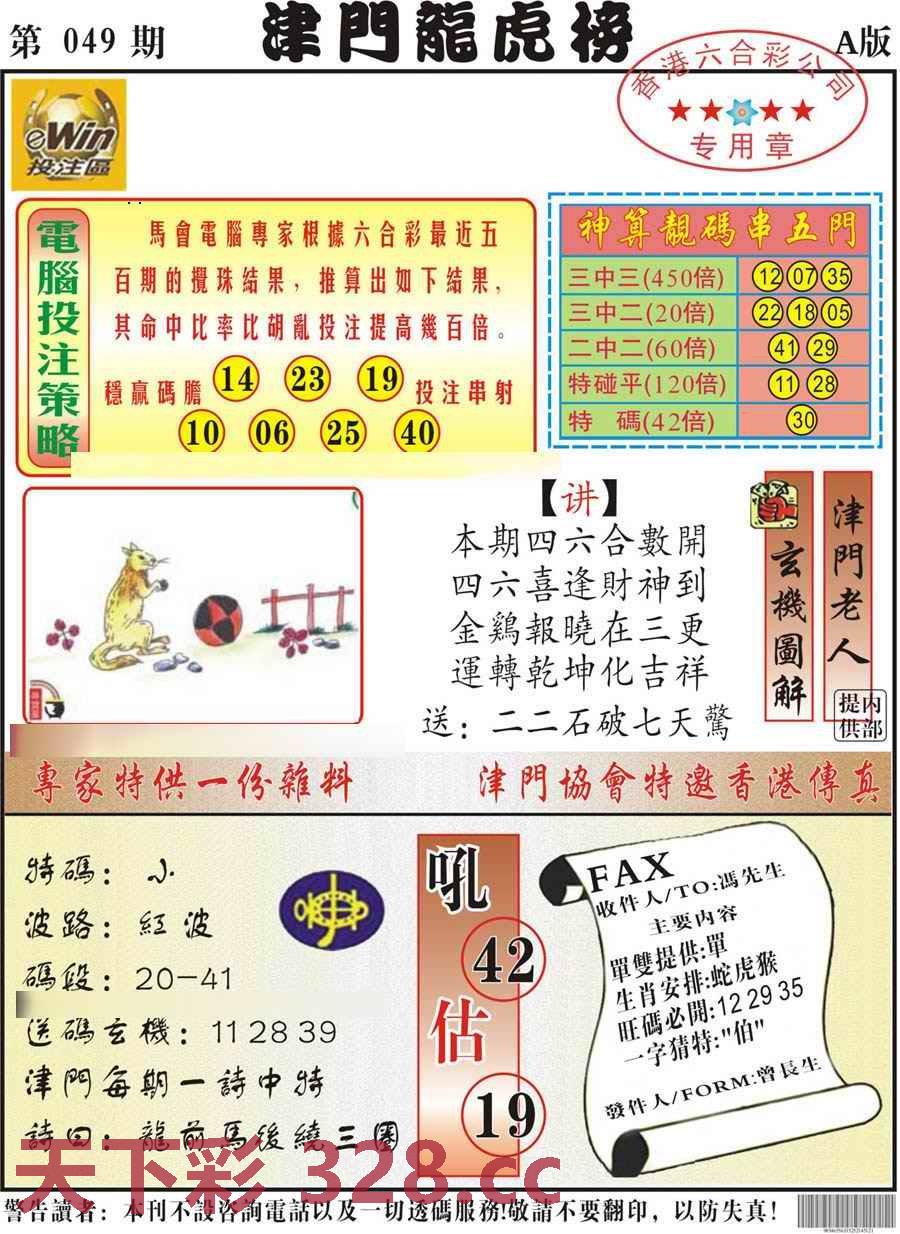 第 049 期
津門龍虎榜
A版
香港六合彩公司
专用章
eWin
投注區
電腦投注策略
馬會電腦專家根據六合彩最近五
百期的攪珠結果，推算出如下結果，
其命中比率比胡亂投注提高幾百倍。
穩贏碼膽 14 23 19 投注串射
10 06 25 40
神算靚碼串五門
三中三(450倍) 12 07 35
三中二(20倍) 22 18 05
二中二(60倍) 41 29
特碰平(120倍) 11 28
特 碼(42倍) 30
【讲】
本期四六合數開
四六喜逢財神到
金鷄報曉在三更
運轉乾坤化吉祥
送：二二石破七天驚
玄機圖解
津門老人
内部提供
專家特供一份雜料
津門協會特邀香港傳真
特碼：小
波路：紅波
碼段：20-41
送碼玄機：11 28 39
津門每期一詩中特
詩曰：龍前馬後繞三圈
吼
42
估
19
FAX
收件人/TO:馮先生
主要内容
單雙提供:單
生肖安排:蛇虎猴
旺碼必開:12 29 35
一字猜特:"伯"
發件人/FORM:曾長生
天下彩 328.cc
警告讀者：本刊不設咨詢電話以及一切透碼服務!敬請不要翻印，以防失真！